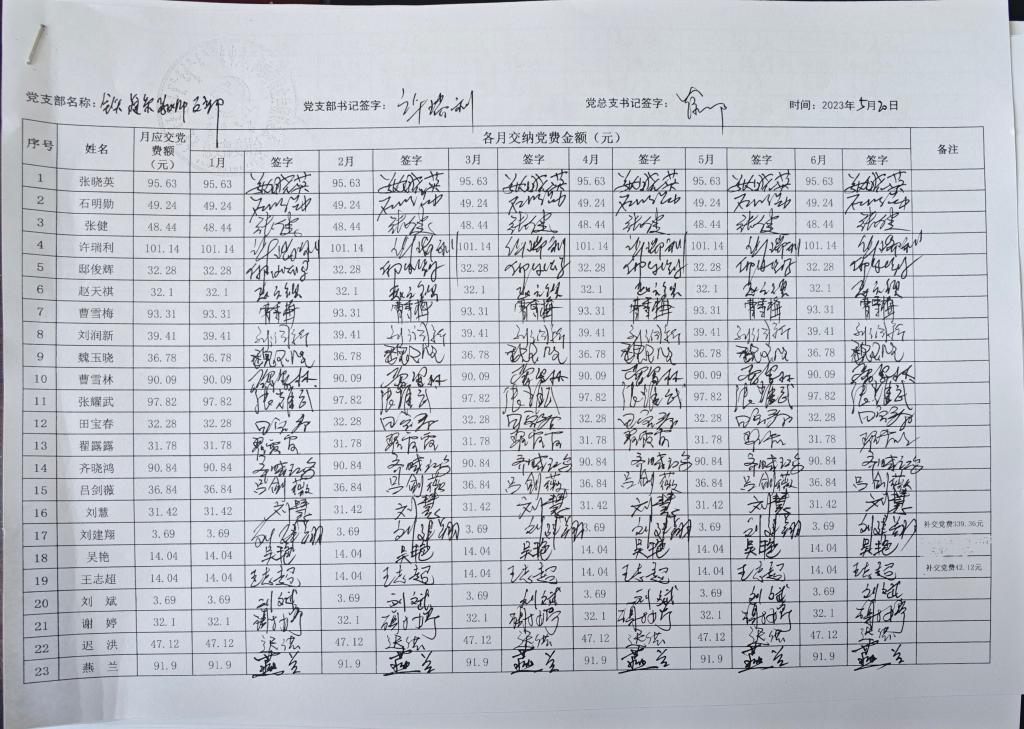 党支部名称: 党支部书记签字: 许瑞利 党总支书记签字: 时间: 2023年5月20日
序号 姓名 月应交党费额(元) 各月交纳党费金额(元) 备注
1月 签字 2月 签字 3月 签字 4月 签字 5月 签字 6月 签字
1 张晓英 95.63 95.63 95.63 95.63 95.63 95.63 95.63
2 石明勋 49.24 49.24 49.24 49.24 49.24 49.24 49.24
3 张健 48.44 48.44 张健 48.44 张健 48.44 张健 48.44 张健 48.44 张健 48.44 张健
4 许瑞利 101.14 101.14 许瑞利 101.14 许瑞利 101.14 许瑞利 101.14 许瑞利 101.14 许瑞利 101.14 许瑞利
5 邸俊辉 32.28 32.28 32.28 32.28 32.28 32.28 32.28
6 赵天祺 32.1 32.1 赵天祺 32.1 赵天祺 32.1 赵天祺 32.1 赵天祺 32.1 赵天祺 32.1 赵天祺
7 曹雪梅 93.31 93.31 曹雪梅 93.31 曹雪梅 93.31 曹雪梅 93.31 曹雪梅 93.31 曹雪梅 93.31 曹雪梅
8 刘润新 39.41 39.41 刘润新 39.41 刘润新 39.41 刘润新 39.41 刘润新 39.41 刘润新 39.41 刘润新
9 魏玉晓 36.78 36.78 魏玉晓 36.78 魏玉晓 36.78 魏玉晓 36.78 魏玉晓 36.78 魏玉晓 36.78 魏玉晓
10 曹雪林 90.09 90.09 曹雪林 90.09 曹雪林 90.09 曹雪林 90.09 曹雪林 90.09 曹雪林 90.09 曹雪林
11 张耀武 97.82 97.82 张耀武 97.82 张耀武 97.82 张耀武 97.82 张耀武 97.82 张耀武 97.82 张耀武
12 田宝春 32.28 32.28 田宝春 32.28 田宝春 32.28 田宝春 32.28 田宝春 32.28 田宝春 32.28 田宝春
13 翟露露 31.78 31.78 翟露露 31.78 翟露露 31.78 翟露露 31.78 翟露露 31.78 31.78
14 齐晓鸿 90.84 90.84 齐晓鸿 90.84 齐晓鸿 90.84 齐晓鸿 90.84 齐晓鸿 90.84 齐晓鸿 90.84 齐晓鸿
15 吕剑薇 36.84 36.84 吕剑薇 36.84 吕剑薇 36.84 吕剑薇 36.84 吕剑薇 36.84 吕剑薇 36.84 吕剑薇
16 刘慧 31.42 31.42 刘慧 31.42 刘慧 31.42 刘慧 31.42 刘慧 31.42 刘慧 31.42 刘慧
17 刘建翔 3.69 3.69 刘建翔 3.69 刘建翔 3.69 刘建翔 3.69 刘建翔 3.69 刘建翔 3.69 刘建翔 补交党费339.36元
18 吴艳 14.04 14.04 吴艳 14.04 吴艳 14.04 吴艳 14.04 吴艳 14.04 吴艳 14.04 吴艳
19 王志超 14.04 14.04 王志超 14.04 王志超 14.04 王志超 14.04 王志超 14.04 王志超 14.04 王志超 补交党费42.12元
20 刘 斌 3.69 3.69 刘斌 3.69 刘斌 3.69 刘斌 3.69 刘斌 3.69 刘斌 3.69 刘斌
21 谢 婷 32.1 32.1 谢婷 32.1 谢婷 32.1 谢婷 32.1 谢婷 32.1 谢婷 32.1 谢婷
22 迟 洪 47.12 47.12 迟洪 47.12 迟洪 47.12 迟洪 47.12 迟洪 47.12 迟洪 47.12 迟洪
23 燕 兰 91.9 91.9 燕兰 91.9 燕兰 91.9 燕兰 91.9 燕兰 91.9 燕兰 91.9 燕兰